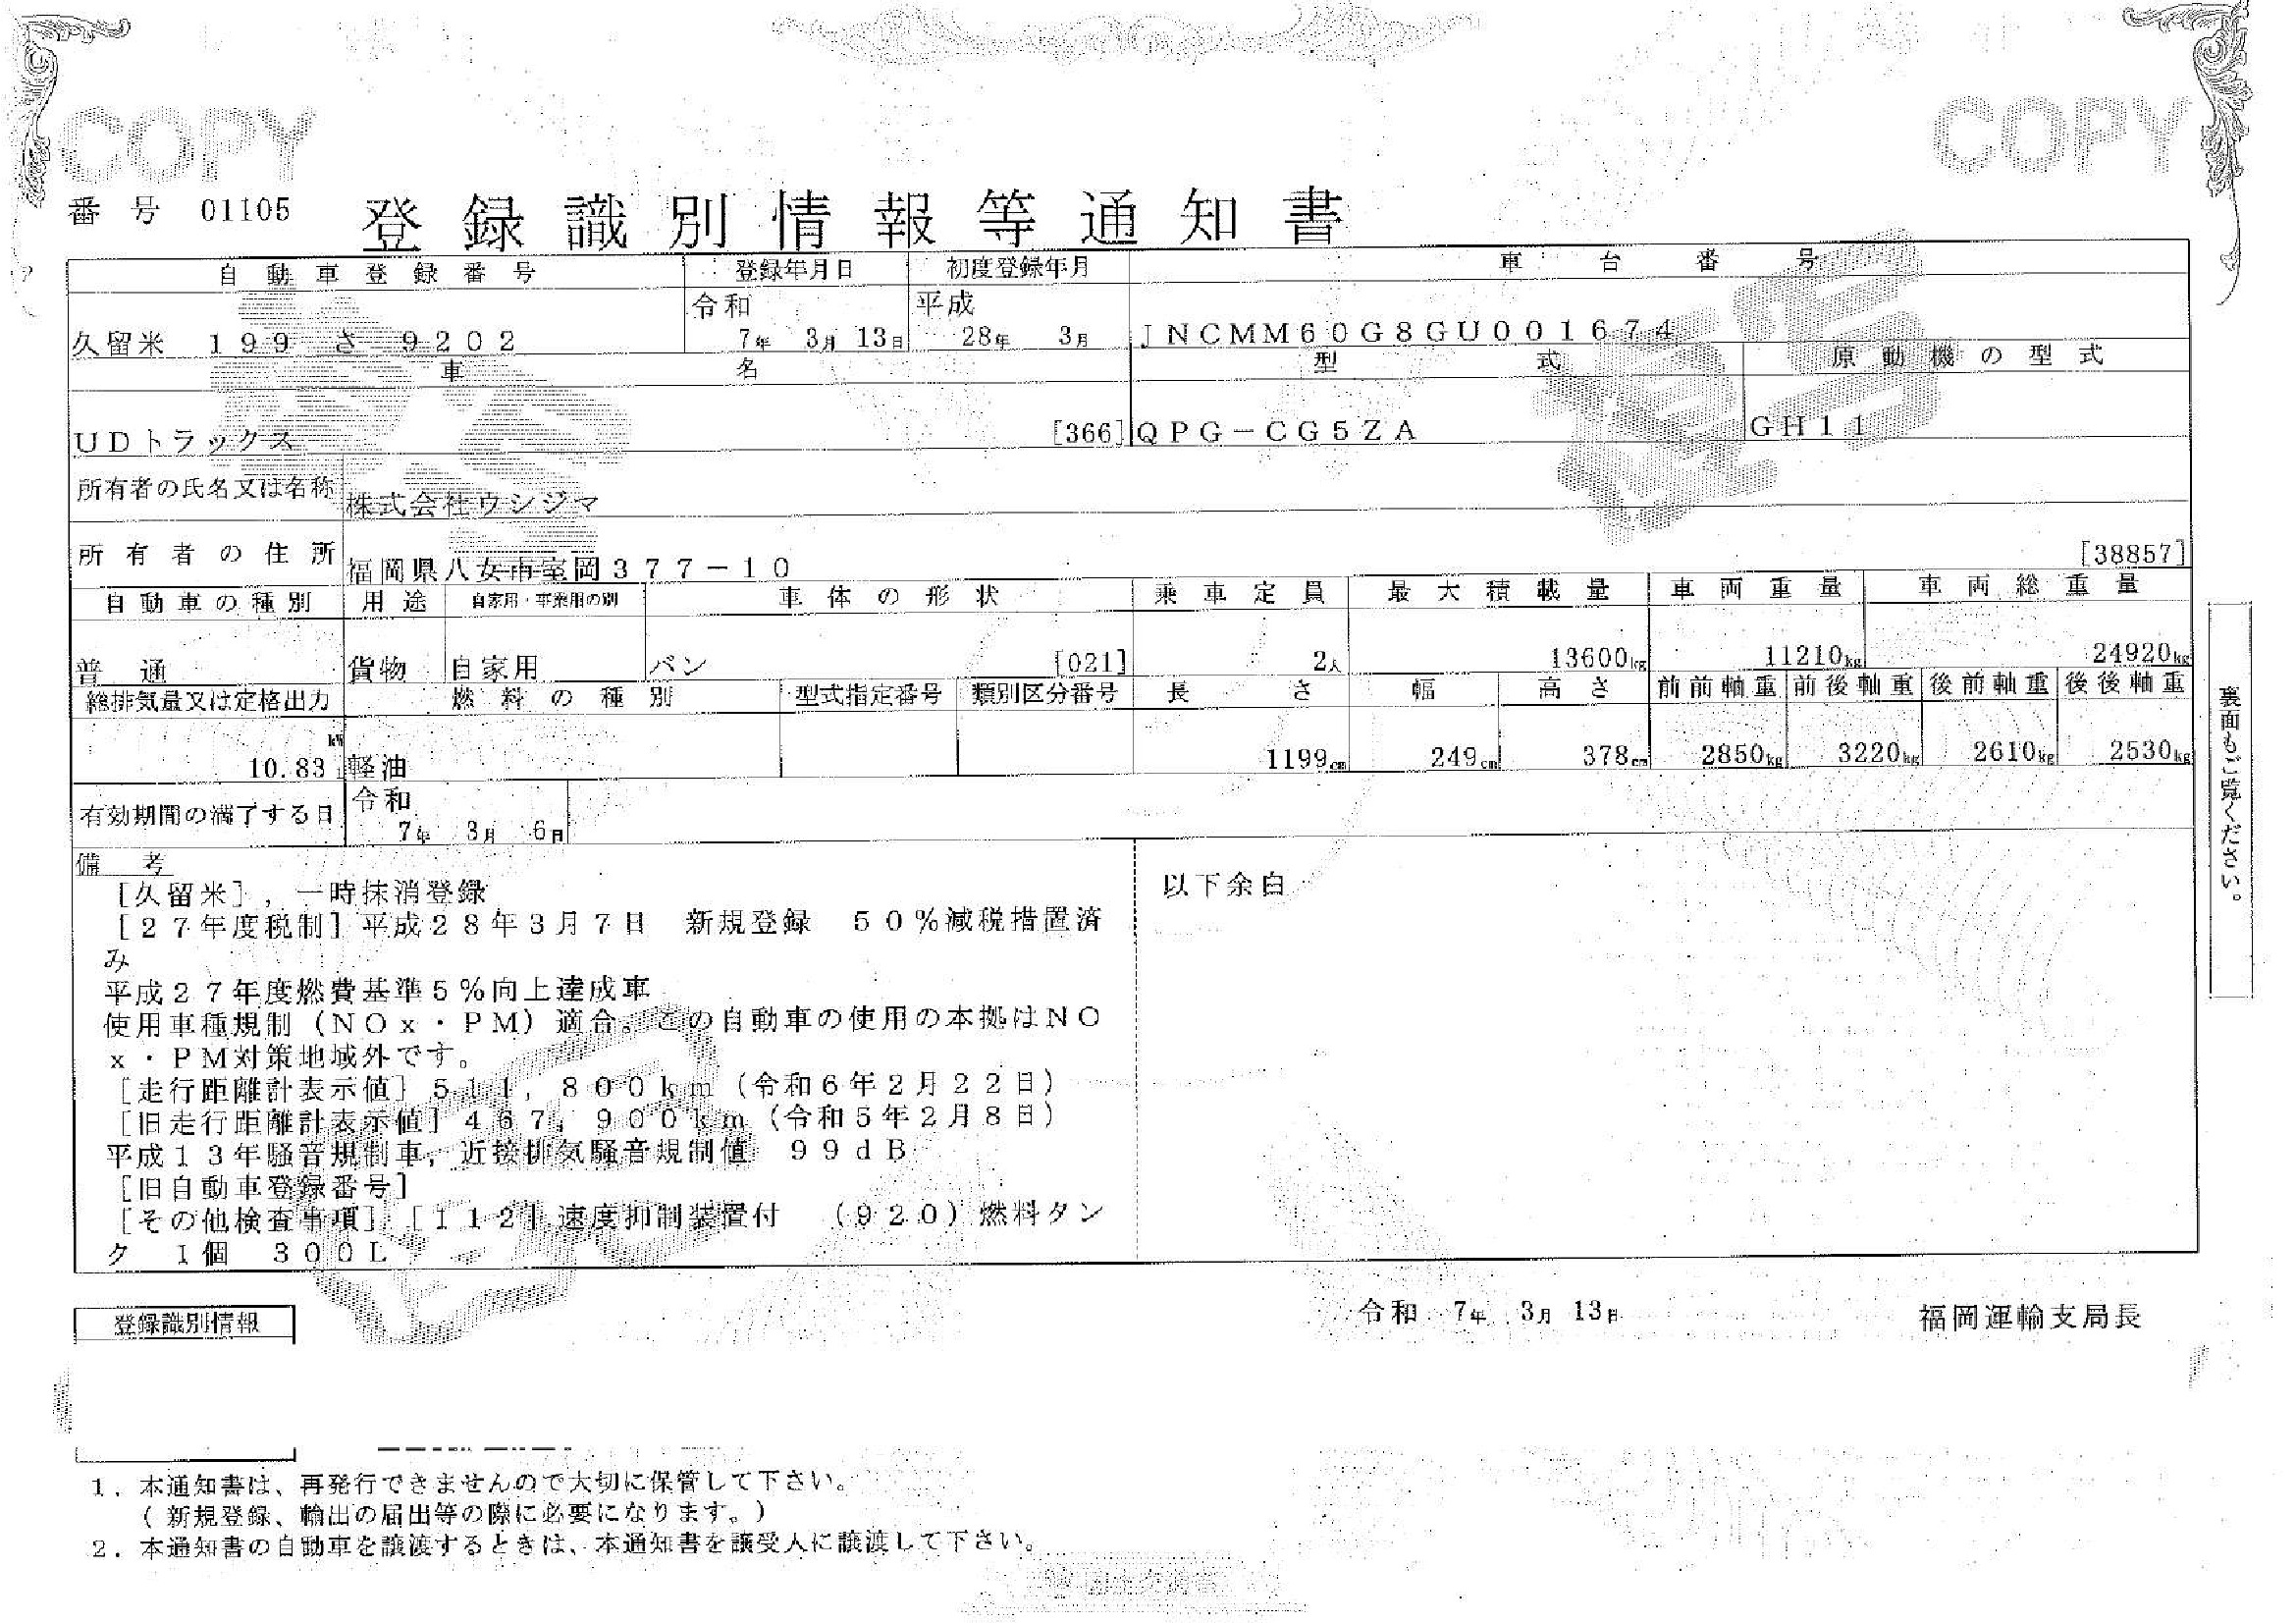 COPY COPY
番号 01105 登録識別情報等通知書
自動車登録番号 登録年月日 初度登録年月 車台番号
令和 平成
久留米 199 さ 9202 7年 3月 13日 28年 3月 JNCMM60G8GU001674
車名 型式 原動機の型式
UDトラックス [366] QPG-CG5ZA GH11
所有者の氏名又は名称 株式会社ウシジマ
所有者の住所 福岡県八女市室岡377-10 [38857]
自動車の種別 用途 自家用・事業用の別 車体の形状 乗車定員 最大積載量 車両重量 車両総重量
普通 貨物 自家用 バン [021] 2人 13600kg 11210kg 24920kg
総排気量又は定格出力 燃料の種別 型式指定番号 類別区分番号 長さ 幅 高さ 前前軸重 前後軸重 後前軸重 後後軸重
kW
10.83 L 軽油 1199cm 249cm 378cm 2850kg 3220kg 2610kg 2530kg
有効期間の満了する日 令和 7年 3月 6日
備考
[久留米],一時抹消登録
[27年度税制]平成28年3月7日 新規登録 50%減税措置済
み
平成27年度燃費基準5%向上達成車
使用車種規制(NOx・PM)適合。この自動車の使用の本拠はNO
x・PM対策地域外です。
[走行距離計表示値]511,800km(令和6年2月22日)
[旧走行距離計表示値]467,900km(令和5年2月8日)
平成13年騒音規制車,近接排気騒音規制値 99dB
[旧自動車登録番号]
[その他検査事項][112]速度抑制装置付 (920)燃料タン
ク 1個 300L
以下余白
裏面もご覧ください。
登録識別情報
令和 7年 3月 13日 福岡運輸支局長
1.本通知書は、再発行できませんので大切に保管して下さい。
(新規登録、輸出の届出等の際に必要になります。)
2.本通知書の自動車を譲渡するときは、本通知書を譲受人に譲渡して下さい。